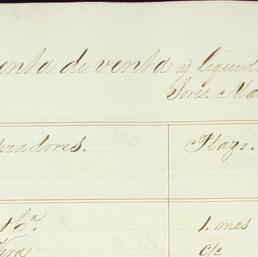 enta de venta y liquid
Sores. Ma
radores. Plazo.
Hª. 1. mes
c/c